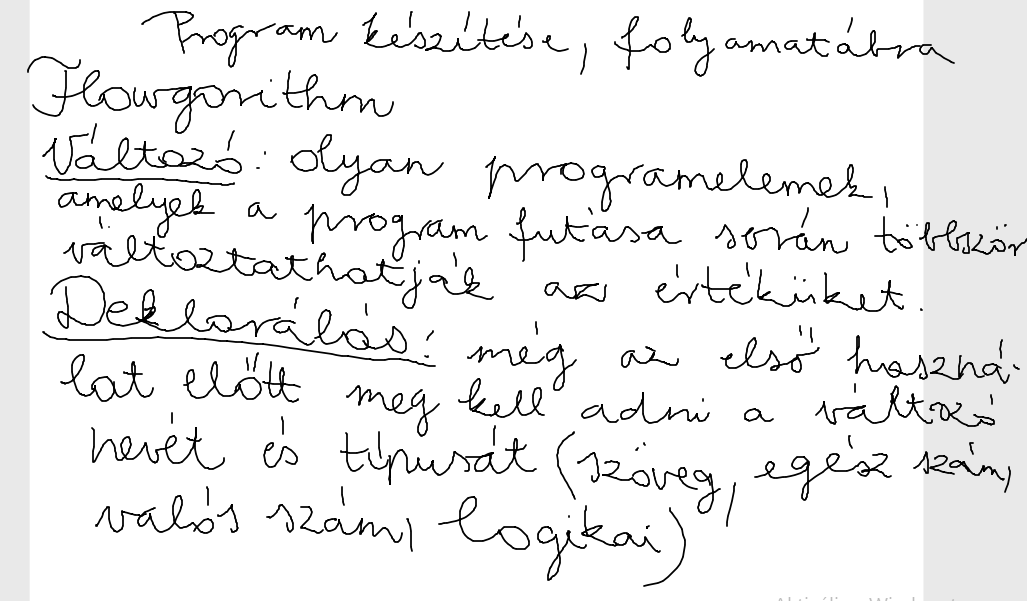 Program készítése, folyamatábra
Flowgorithm
Változó: olyan programelemek,
amelyek a program futása során többször
változtathatják az értéküket.
Deklarálás: még az első haszná-
lat előtt meg kell adni a változó
nevét és típusát (szöveg, egész szám,
valós szám, logikai)